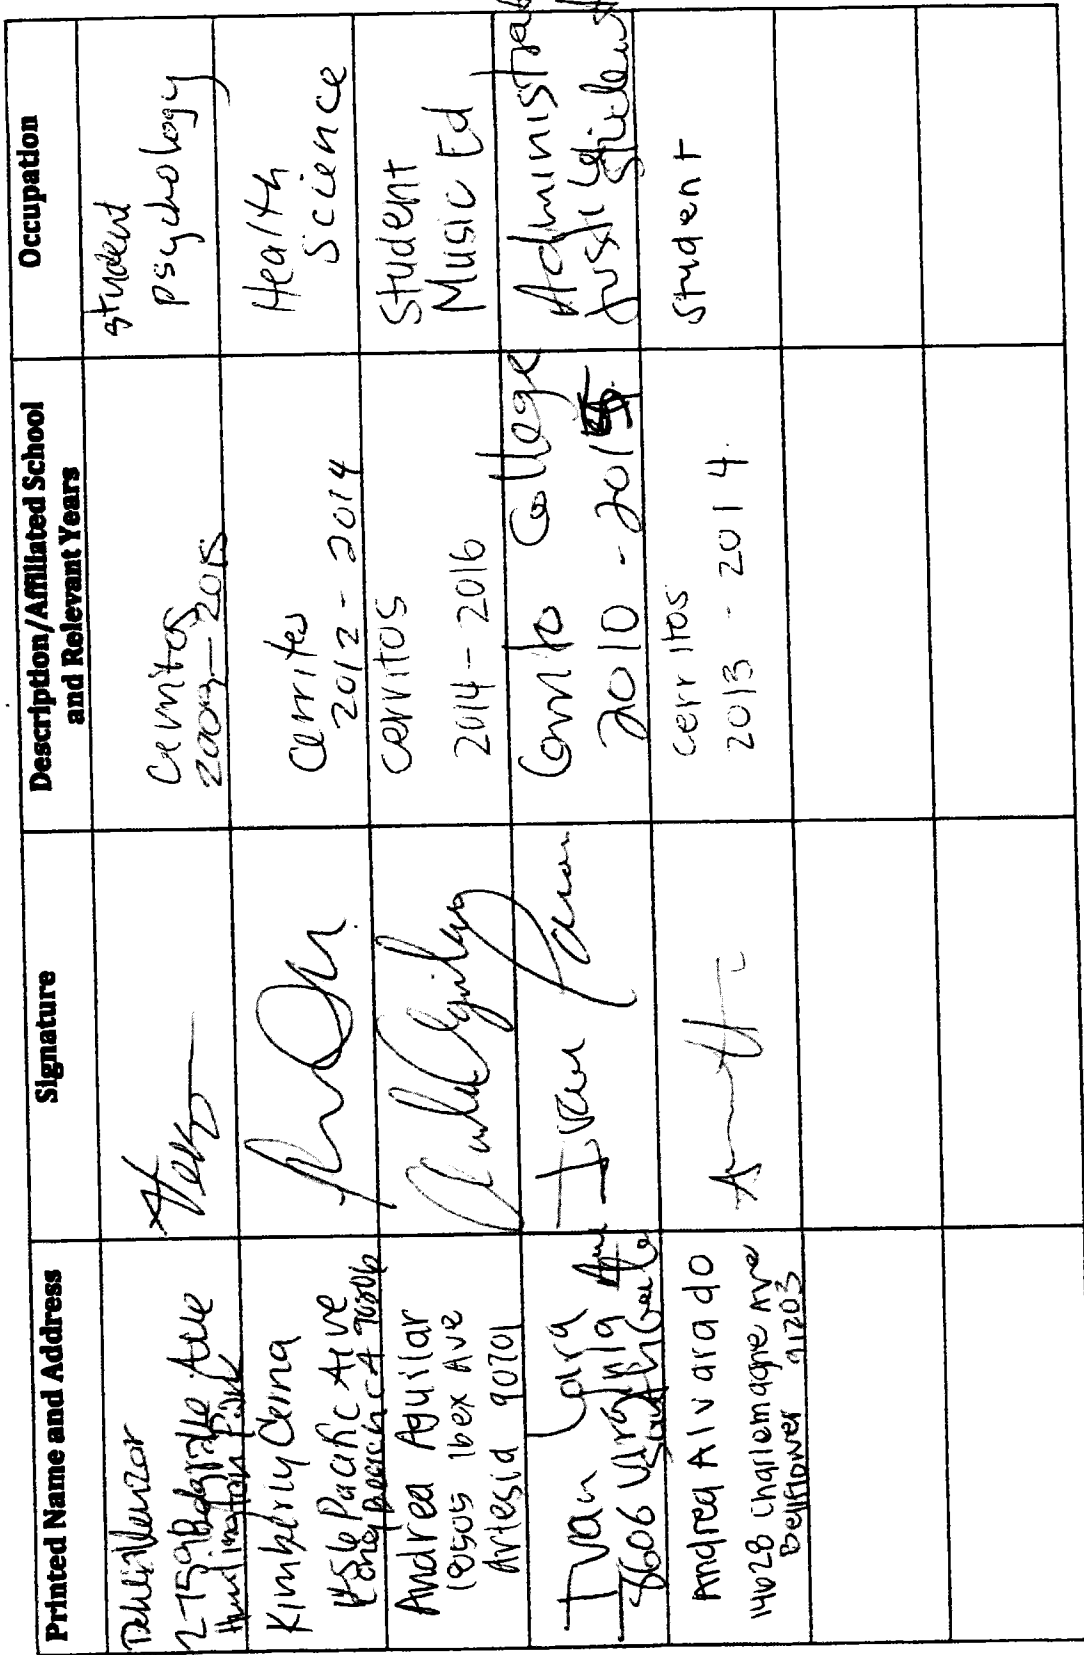 Printed Name and Address
Signature
Description/Affiliated School
and Relevant Years
Occupation
Ave
Huntington Park
Cerritos
student
psychology
Kimberly Cerna
Pacific Ave
Long Beach CA
Cerrites
2012 - 2014
Health
Science
Andrea Aguilar
18505 Ibex Ave
Artesia 90701
cerritos
2014 - 2016
Student
Music Ed
Ivan Lara
8606 Virginia Ave
Southgate
Ivan
College
2010 - 2015
Student
Andrea Alvarado
14628 Charlemagne Ave
Bellflower 91203
cerritos
2013 - 2014
Student